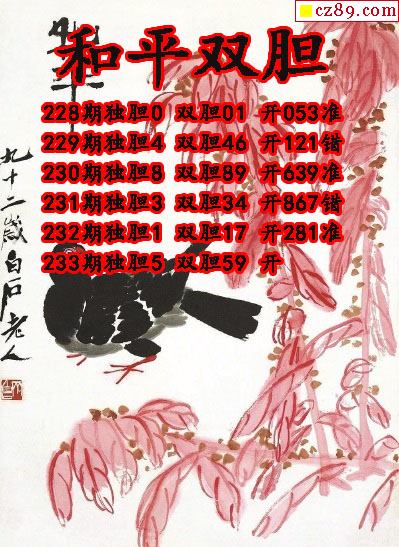 cz89.com
和平双胆
228期独胆0 双胆01 开053准
229期独胆4 双胆46 开121错
230期独胆8 双胆89 开639准
231期独胆3 双胆34 开867错
232期独胆1 双胆17 开281准
233期独胆5 双胆59 开
九十二岁白石老人